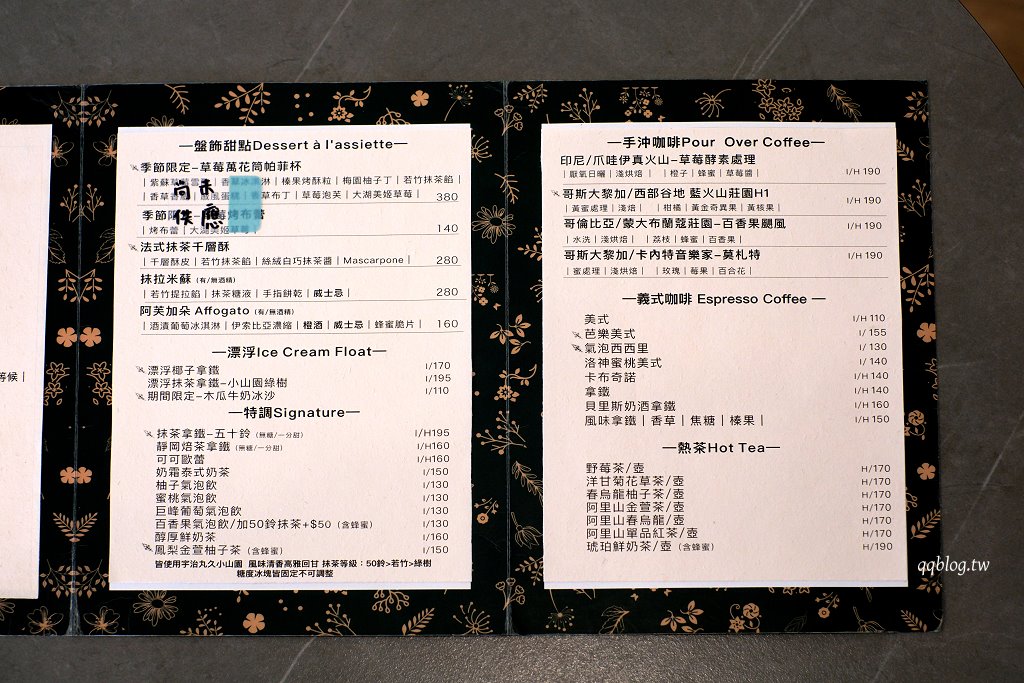 等候|
—盤飾甜點Dessert à l'assiette—
季節限定-草莓萬花筒帕菲杯
|紫蘇草莓雪酪|香草冰淇淋|榛果烤酥粒|梅園柚子丁|若竹抹茶餡|
|香草香緹|戚風蛋糕|香草布丁|草莓泡芙|大湖美姬草莓| 380
尚未
供應
季節限定-草莓烤布蕾
|烤布蕾|大湖美姬草莓| 140
法式抹茶千層酥
|千層酥皮|若竹抹茶餡|絲絨白巧抹茶醬|Mascarpone| 280
抹拉米蘇(有/無酒精)
|若竹提拉餡|抹茶糖液|手指餅乾|威士忌| 280
阿芙加朵 Affogato(有/無酒精)
|酒漬葡萄冰淇淋|伊索比亞濃縮|橙酒|威士忌|蜂蜜脆片| 160
—漂浮Ice Cream Float—
漂浮椰子拿鐵 I/170
漂浮抹茶拿鐵-小山園綠樹 I/195
期間限定-木瓜牛奶冰沙 I/110
—特調Signature—
抹茶拿鐵-五十鈴(無糖/一分甜) I/H195
靜岡焙茶拿鐵(無糖/一分甜) I/H160
可可歐蕾 I/H160
奶霜泰式奶茶 I/150
柚子氣泡飲 I/130
蜜桃氣泡飲 I/130
巨峰葡萄氣泡飲 I/130
百香果氣泡飲/加50鈴抹茶+$50(含蜂蜜) I/130
醇厚鮮奶茶 I/160
鳳梨金萱柚子茶(含蜂蜜) I/150
皆使用宇治丸久小山園 風味清香高雅回甘 抹茶等級:50鈴>若竹>綠樹
糖度冰塊皆固定不可調整
—手沖咖啡Pour Over Coffee—
印尼/爪哇伊真火山-草莓酵素處理
|厭氧日曬|淺烘焙| |橙子|蜂蜜|草莓醬| I/H 190
哥斯大黎加/西部谷地 藍火山莊園H1
|黃蜜處理|淺焙| |柑橘|黃金奇異果|黃核果| I/H 190
哥倫比亞/蒙大布蘭蔻莊園-百香果颶風
|水洗|淺烘焙| |荔枝|蜂蜜|百香果| I/H 190
哥斯大黎加/卡內特音樂家-莫札特
|蜜處理|淺烘焙| |玫瑰|莓果|百合花| I/H 190
—義式咖啡 Espresso Coffee —
美式 I/H 110
芭樂美式 I/ 155
氣泡西西里 I/ 130
洛神蜜桃美式 I/ 140
卡布奇諾 I/H 140
拿鐵 I/H 140
貝里斯奶酒拿鐵 I/H 160
風味拿鐵|香草|焦糖|榛果| I/H 150
—熱茶Hot Tea—
野莓茶/壺 H/170
洋甘菊花草茶/壺 H/170
春烏龍柚子茶/壺 H/170
阿里山金萱茶/壺 H/170
阿里山春烏龍/壺 H/170
阿里山單品紅茶/壺 H/170
琥珀鮮奶茶/壺(含蜂蜜) H/190
qqblog.tw